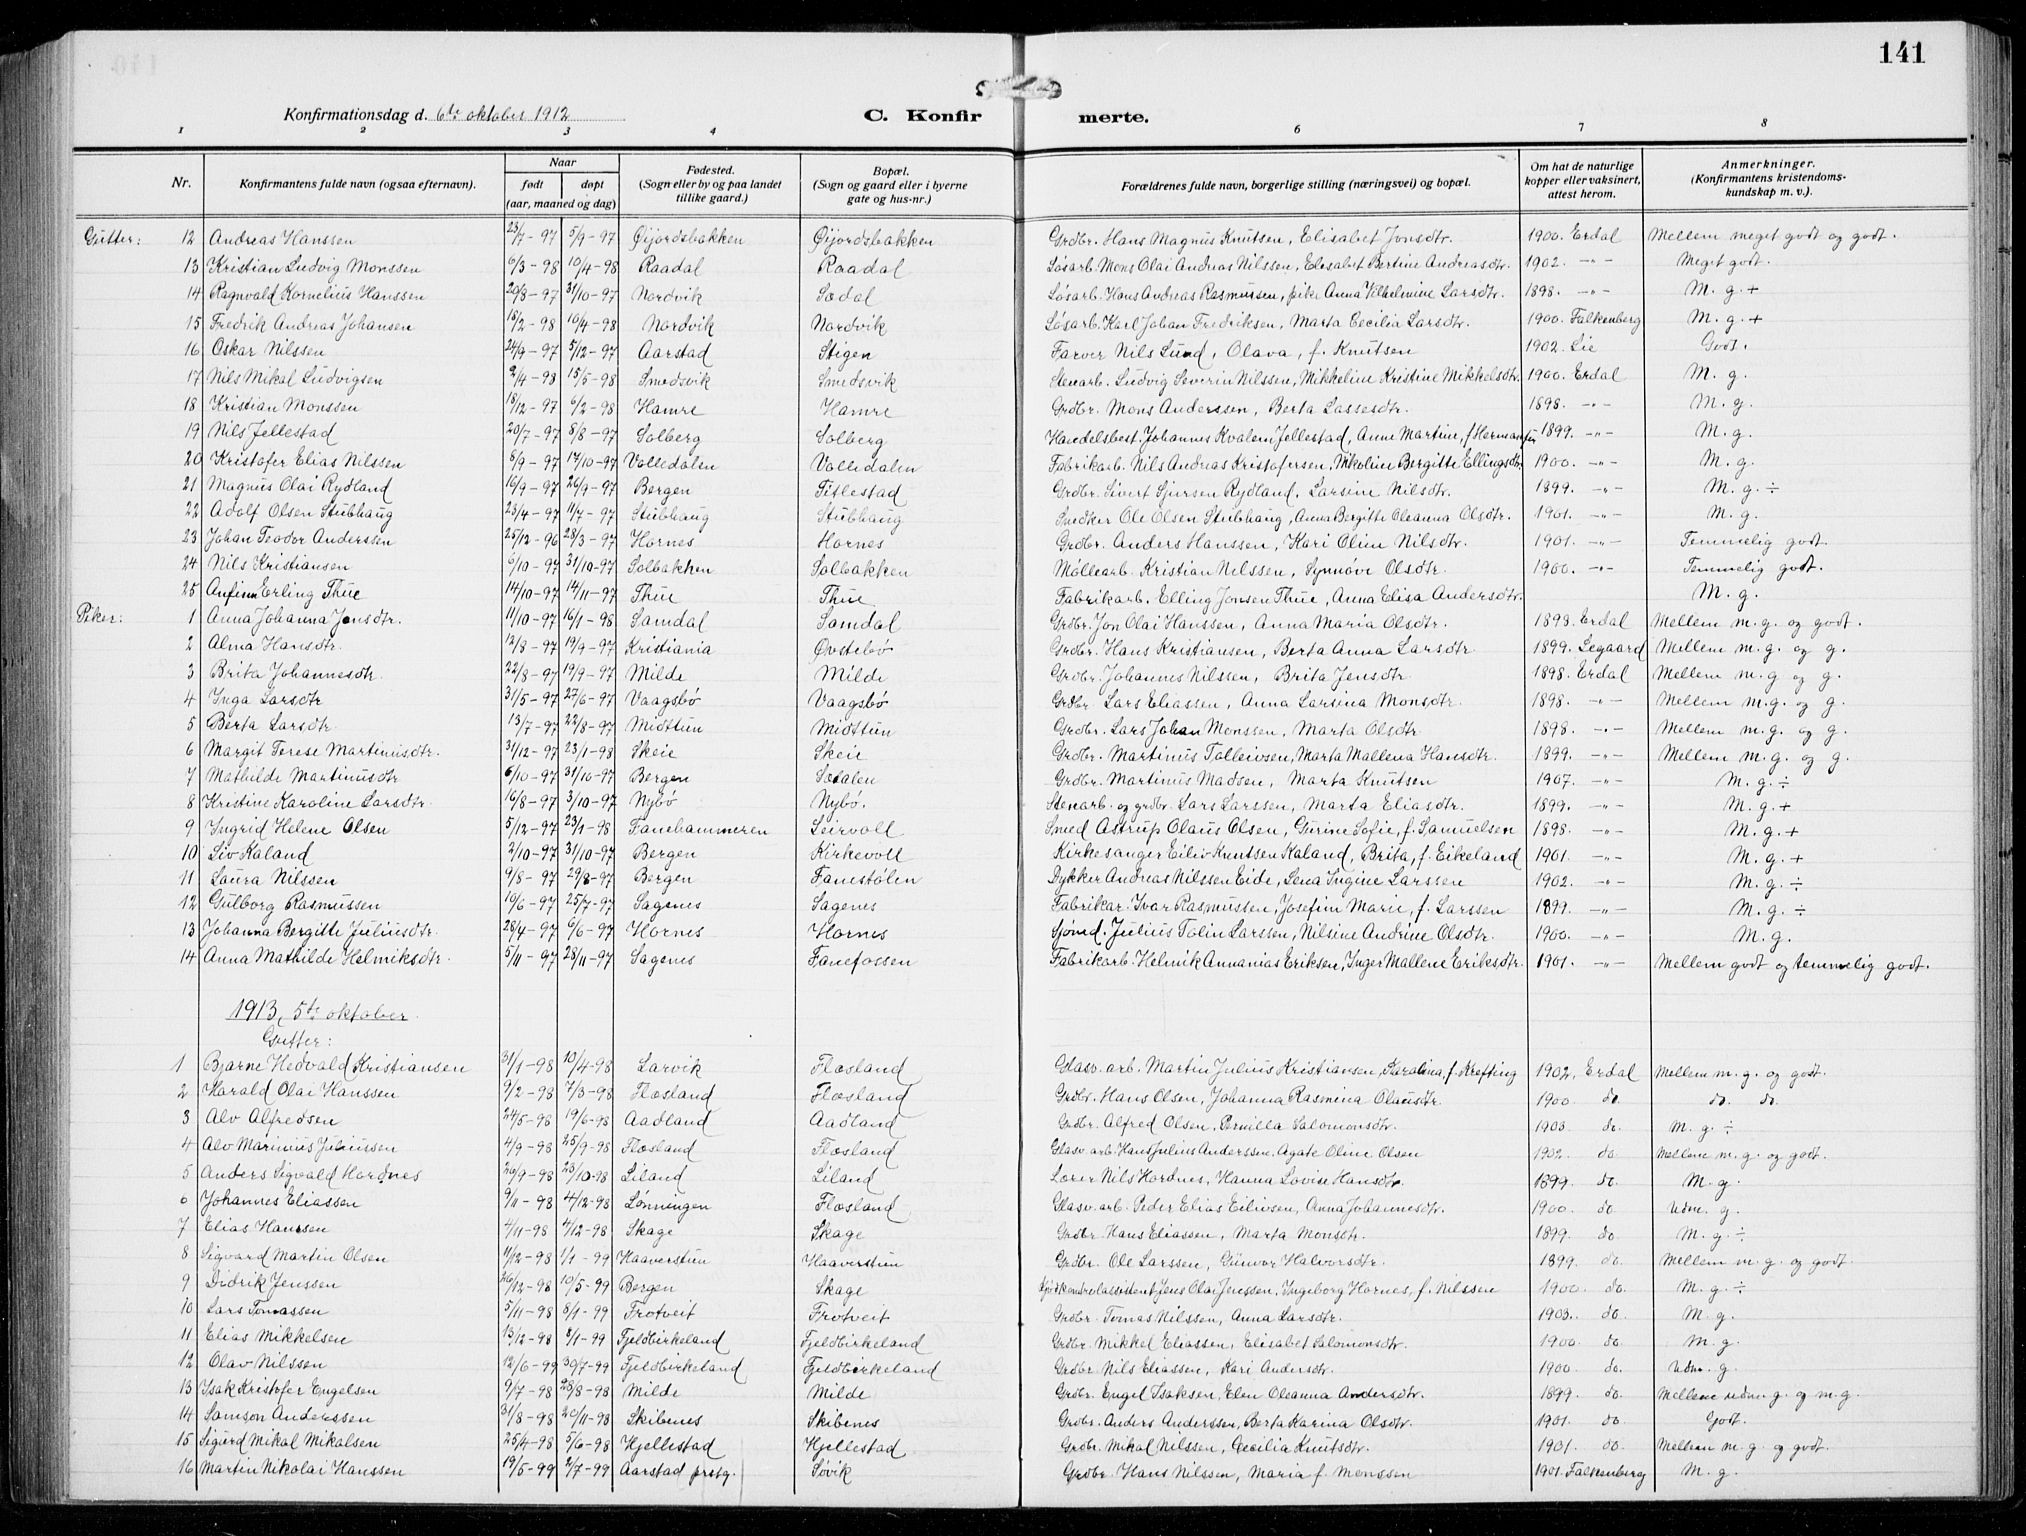 141
Konfirmationsdag d. 6te oktober 1912 C. Konfirmerte.
1 2 3 4 5 6 7 8
Nr. Konfirmantens fulde navn (ogsaa efternavn). Naar født døpt (aar, maaned og dag) Fødested. (Sogn eller by og paa landet tillike gaard.) Bopæl. (Sogn og gaard eller i byerne gate og hus-nr.) Forældrenes fulde navn, borgerlige stilling (næringsvei) og bopæl. Om hat de naturlige kopper eller vaksinert, attest herom. Anmerkninger. (Konfirmantens kristendomskundskap m. v.).
Gutter: 12 Andreas Hanssen 23/7-97 5/9-97 Øijordsbakken Øijordsbakken Grdbr. Hans Magnus Knutsen, Elisabet Jonsdtr. 1900. Erdal Mellem meget godt og godt.
13 Kristian Ludvig Monssen 6/3-98 10/4-98 Raadal Raadal Løsarb. Mons Olai Andreas Nilssen, Elesabet Bertine Andreasdtr. 1902. -"- Meget godt.
14 Ragnvald Kornelius Hanssen 20/8-97 31/10-97 Nordvik Sædal Løsarb. Hans Andreas Rasmussen, pike Anna Vilhelmine Larsdtr. 1898. -"- M. g. +
15 Fredrik Andreas Johansen 18/2-98 10/4-98 Nordvik Nordvik Løsarb. Karl Johan Fredriksen, Marta Cecilia Larsdtr. 1900. Falkenberg M. g. +
16 Oskar Nilssen 24/9-97 5/12-97 Aarstad Stigen Farver Nils Lund, Olava, f. Knutsen 1902. Lie Godt.
17 Nils Mikal Ludvigsen 2/4-98 15/5-98 Smedsvik Smedsvik Stenarb. Ludvig Severin Nilssen, Mikkeline Kristine Mikkelsdtr. 1900. Erdal M. g.
18 Kristian Monssen 18/12-97 6/2-98 Hamre Hamre Grdbr. Mons Anderssen, Berta Lassesdtr. 1898. -"- M. g.
19 Nils Jellestad 20/7-97 8/8-97 Solberg Solberg Handelsbest. Johannes Kvalem Jellestad, Anne Martine, f. Hermansen 1899. -"- M. g.
20 Kristofer Elias Nilssen 6/9-97 17/10-97 Volledalen Volledalen Fabrikarb. Nils Andreas Kristofersen, Nikoline Bergitte Ellingsdtr. 1900. -"- M. g.
21 Magnus Olai Rydland 16/9-97 26/9-97 Bergen Titlestad Grdbr. Sivert Sjursen Rydland, Larsine Nilsdtr. 1899. -"- M. g. ÷
22 Adolf Olsen Stubhaug 23/4-97 11/7-97 Stubhaug Stubhaug Snedker Ole Olsen Stubhaug, Anna Bergitte Oleanna Olsdtr. 1901. -"- M. g.
23 Johan Teodor Anderssen 25/12-96 28/3-97 Hornes Hornes Grdbr. Anders Hanssen, Kari Oline Nilsdtr. 1901. -"- Temmelig godt.
24 Nils Kristiansen 6/10-97 31/10-97 Solbakken Solbakken Møllearb. Kristian Nilssen, Synnøve Olsdtr. 1900. -"- Temmelig godt.
25 Anfinn Erling Thue 14/10-97 14/11-97 Thue Thue Fabrikarb. Elling Jonsen Thue, Anna Elisa Andersdtr. M. g.
Piker: 1 Anna Johanna Jonsdtr. 11/10-97 16/1-98 Samdal Samdal Grdbr. Jon Olai Hanssen, Anna Maria Olsdtr. 1898. Erdal Mellem m. g. og godt.
2 Alma Hansdtr. 12/8-97 19/9-97 Kristiania Øvstebø Grdbr. Hans Kristiansen, Berta Anna Larsdtr 1899. Legaard Mellem m. g. og g.
3 Brita Johannesdtr. 22/8-97 19/9-97 Milde Milde Grdbr. Johannes Nilssen, Brita Jensdtr 1898. Erdal Mellem m. g og g.
4 Inga Larsdtr 31/5-97 27/6-97 Vaagsbø Vaagsbø Grdbr Lars Eliassen, Anna Larsina Monsdtr. 1898. -"- Mellem m. g. og g.
5 Berta Larsdtr. 13/7-97 22/8-97 Midttun Midttun Grdbr. Lars Johan Monssen, Marta Olsdtr 1898. -"- Mellem m. g. og g.
6 Margit Terese Martinusdtr. 31/12-97 23/1-98 Skeie Skeie Grdbr. Martinus Tolleivsen, Marta Mallena Hansdtr. 1899. -"- Mellem m. g. og g.
7 Mathilde Martinusdtr 6/10-97 31/10-97 Bergen Sædalen Grdbr. Martinus Madsen, Marta Knutsen 1907. -"- M. g. ÷
8 Kristine Karoline Larsdtr. 16/8-97 3/10-97 Nybø Nybø. Stenarb. og grdbr. Lars Larssen, Marta Eliasdtr. 1899. -"- M. g. +
9 Ingrid Helene Olsen 5/12-97 23/1-98 Fanehammeren Leirvoll Smed Astrup Olaus Olsen, Gurine Sofie, f. Samuelsen 1898. -"- M. g. +
10 Liv Kaland 2/10-97 31/10-97 Bergen Kirkevoll Kirkesanger Eiliv Knutsen Kaland, Brita, f. Eikeland 1901. -"- M. g. +
11 Laura Nilssen 9/8-97 29/8-97 Bergen Fanestølen Dykker Andreas Nilssen Eide, Lena Ingine Larssen 1902. -"- M. g. ÷
12 Gulborg Rasmussen 19/6-97 25/7-97 Sagenes Sagenes Fabrikar. Ivar Rasmussen, Josefine Marie, f. Larssen 1899. -"- M. g. ÷
13 Johanna Bergitte Juliusdtr. 28/4-97 6/6-97 Hornes Hornes Sjømd. Julius Tolin Larssen, Nilsine Andrine Olsdtr. 1900. -"- M. g.
14 Anna Mathilde Helmiksdtr. 5/11-97 28/11-97 Sagenes Fanefossen Fabrikarb. Helmik Annanias Eriksen, Inger Mallene Eriksdtr. 1901. -"- Mellem godt og temmelig godt.
1913, 5te oktober.
Gutter:
1 Bjarne Hedvald Kristiansen 31/1-98 10/4-98 Larvik Flæsland Glasv. arb. Martin Julius Kristiansen, Karolina, f. Krefting 1902. Erdal Mellem m. g. og godt.
2 Harald Olai Hanssen 9/2-98 7/3-98 Flæsland Flæsland Grdbr. Hans Olsen, Johanna Rasmina Olausdtr. 1900 do do. do.
3 Alv Alfredsen 24/5-98 19/6-98 Aadland Aadland Grdbr. Alfred Olsen, Pernilla Salomonsdtr. 1903. do. M. g. ÷
4 Alv Marinius Juliussen 4/9-98 25/9-98 Flæsland Flæsland Glasv. arb. Hans Julius Anderssen, Agate Oline Olsen 1902. do Mellem m. g. og godt.
5 Anders Sigvald Hordnes 26/9-98 23/10-98 Liland Liland Lærer Nils Hordnes, Hanna Lovise Hansdtr. 1899 do. M. g.
6 Johannes Eliassen 9/11-98 4/12-98 Lønningen Flæsland Glasv. arb. Peder Elias Eilivsen, Anna Johannesdtr. 1900. do Udm. g.
7 Elias Hanssen 4/11-98 4/12-98 Skage Skage Grdbr. Hans Eliassen, Marta Monsdtr. 1899. do M. g. ÷
8 Sigvard Martin Olsen 11/12-98 1/1-99 Haaverstun Haaverstun Grdbr. Ole Larssen, Gunvor Halvorsdtr. 1899. do. Mellem m. g. og godt.
9 Didrik Jenssen 26/12-98 10/5-99 Bergen Skage Jens Olai Jenssen, Ingeborg Hornes, f. Nilssen 1900. do. M. g. ÷
10 Lars Tomassen 5/11-98 8/1-99 Frotveit Frotveit Grdbr. Tomas Nilssen, Anna Larsdtr. 1903. do. M. g.
11 Elias Mikkelsen 13/12-98 8/1-99 Fjeldbirkeland Fjeldbirkeland Grdbr. Mikkel Eliassen, Elisabet Salomonsdtr. 1900. do. M. g.
12 Olav Nilssen 12/6-99 30/7-99 Fjeldbirkeland Fjeldbirkeland Grdbr Nils Eliassen, Kari Andersdtr. 1900 do. Udm. g.
13 Isak Kristofer Engelsen 9/7-98 28/8-98 Milde Milde Grdbr. Engel Isaksen, Elen Oleanna Andersdtr. 1899. do. Mellem udm. g. og m. g.
14 Samson Anderssen 31/8-98 20/11-98 Skibenes Skibenes Grdbr. Anders Anderssen, Berta Karina Olsdtr. 1901. do Godt.
15 Sigurd Mikal Mikalsen 25/4-98 5/6-98 Hjellestad Hjellestad Grdbr. Mikal Nilssen, Cecilia Knutsdtr. 1901. do. Mellem m. g. og godt.
16 Martin Nikolai Hanssen 19/5-99 2/7-99 Aarstad prstg. Søvik Grdbr. Hans Nilssen, Maria f. Monssen 1901. Falkenberg M. g.